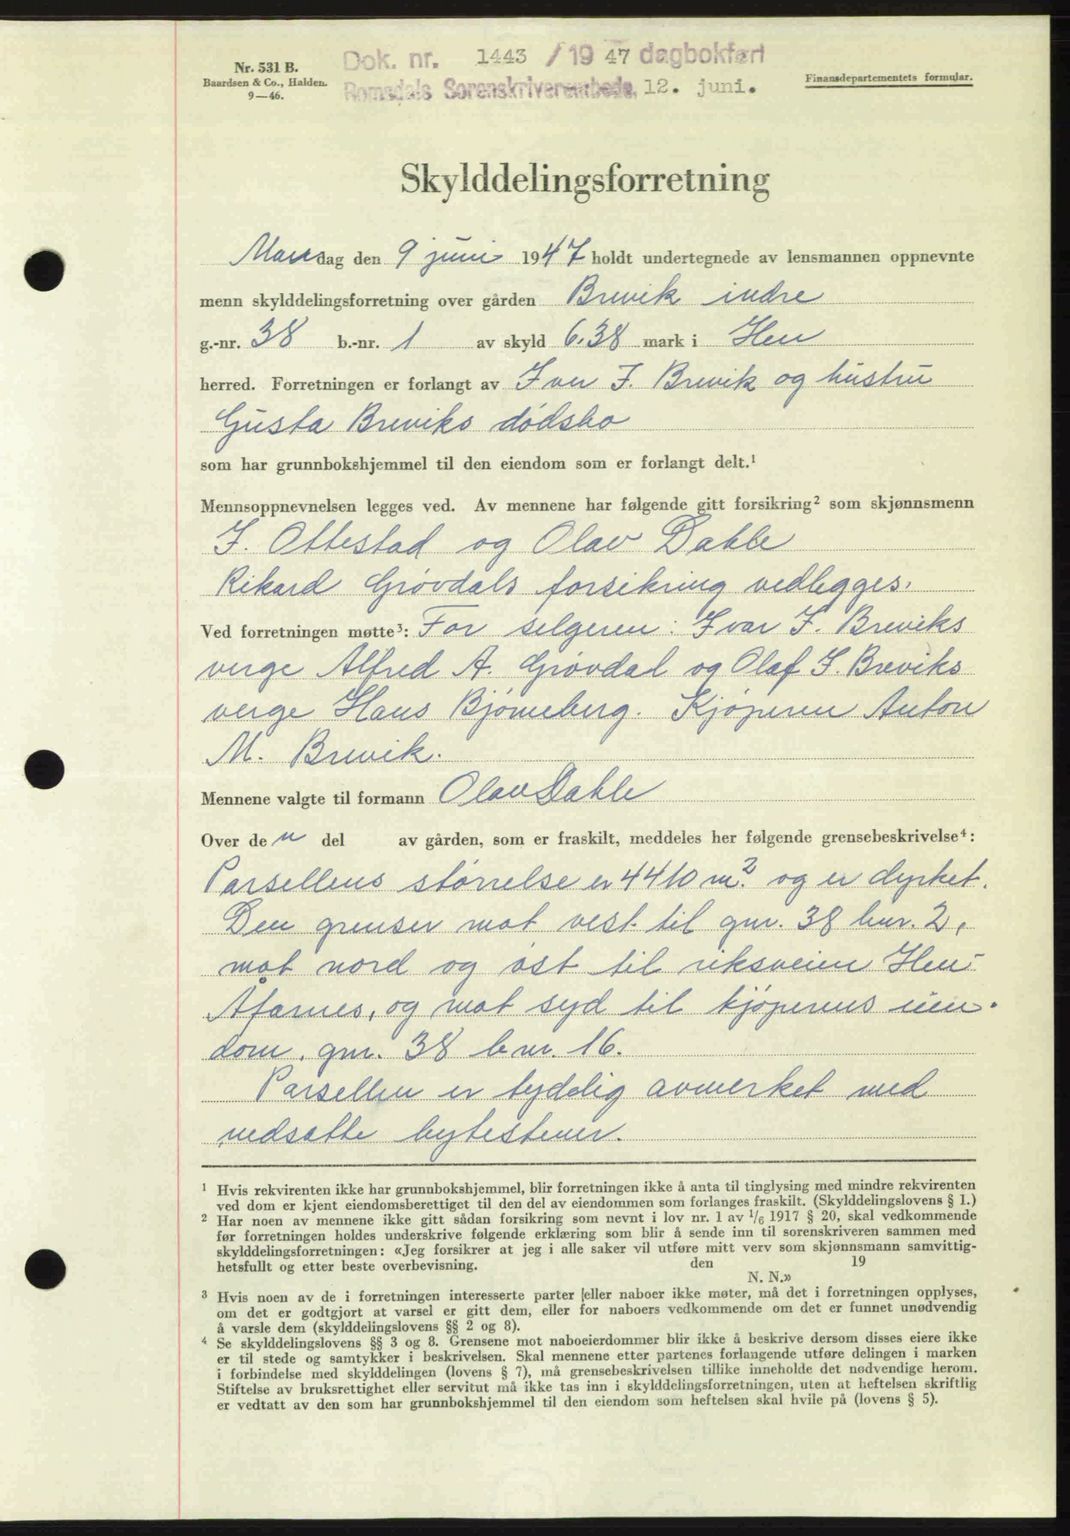 Nr. 531 B.
Baardsen & Co., Halden.
9—46.
Dok. nr. 1443 / 19 47 dagbokført
Romsdals Sorenskriverembede, 12. juni.
Finansdepartementets formular.
Skylddelingsforretning
Mandag den 9 juni 1947 holdt undertegnede av lensmannen oppnevnte
menn skylddelingsforretning over gården Brevik indre
g.-nr. 38 b.-nr. 1 av skyld 6.38 mark i Hen
herred. Forretningen er forlangt av Iver I. Brevik og hustru
Gusta Breviks dødsbo
som har grunnbokshjemmel til den eiendom som er forlangt delt.¹
Mennsoppnevnelsen legges ved. Av mennene har følgende gitt forsikring² som skjønnsmenn
I. Ottestad og Olav Dahle
Rikard Grøvdals forsikring vedlegges.
Ved forretningen møtte³: For selgeren: Ivar I. Breviks
verge Alfred A. Grøvdal og Olaf I. Breviks
verge Hans Bjørneberg. Kjøperen Anton
M. Brevik.
Mennene valgte til formann Olav Dahle
Over de n del av gården, som er fraskilt, meddeles her følgende grensebeskrivelse⁴:
Parsellens størrelse er 4410 m². og er dyrket.
Den grenser mot vest til gnr. 38 bnr. 2,
mot nord og øst til riksveien Hen-
Åfarnes, og mot syd til kjøperens eien-
dom. gnr. 38 bnr. 16.
Parsellen er tydelig avmerket med
nedsatte bytesteiner.
¹ Hvis rekvirenten ikke har grunnbokshjemmel, blir forretningen ikke å anta til tinglysing med mindre rekvirenten
ved dom er kjent eiendomsberettiget til den del av eiendommen som forlanges fraskilt. (Skylddelingslovens § 1.)
² Har noen av mennene ikke gitt sådan forsikring som nevnt i lov nr. 1 av 1/6 1917 § 20, skal vedkommende
før forretningen holdes underskrive følgende erklæring som blir å sende inn til sorenskriveren sammen med
skylddelingsforretningen: «Jeg forsikrer at jeg i alle saker vil utføre mitt verv som skjønnsmann samvittig-
hetsfullt og etter beste overbevisning. den 19
N. N.»
³ Hvis noen av de i forretningen interesserte parter eller naboer ikke møter, må det i forretningen opplyses,
om det er godtgjort at varsel er gitt dem, eller for naboers vedkommende om det er funnet unødvendig
å varsle dem (skylddelingslovens §§ 2 og 8).
⁴ Se skylddelingslovens §§ 3 og 8. Grensene mot naboeierdommer blir ikke å beskrive dersom disses eiere ikke
er til stede og samtykker i beskrivelsen. Skal mennene etter partenes forlangende utføre delingen i marken
i forbindelse med skylddelingen (lovens § 7), må grensebeskrivelsen tillike inneholde det nødvendige herom.
Stiftelse av bruksrettighet eller servitut må ikke tas inn i skylddelingsforretningen, uten at heftelsen skriftlig
er vedtatt av den som har grunnbokshjemmel til den eiendom som heftelsen skal hvile på (lovens § 5).